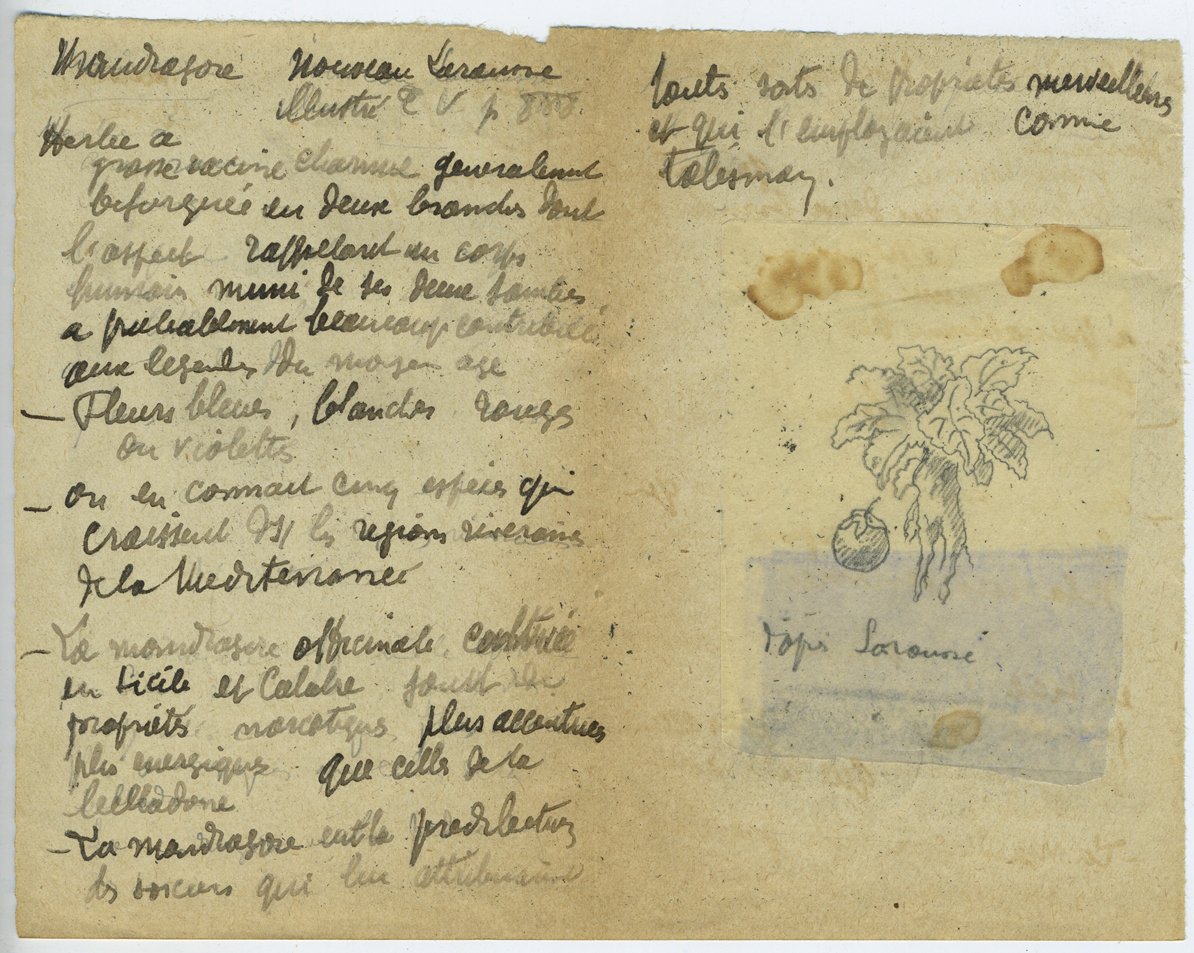 Mandragore Nouveau Larousse
illustré T V p 888
Herbe à
grosse racine charnue generalement
bifurquée en deux branches dont
l'aspect rappelant un corps
humain muni de ses deux jambes
a probablement beaucoup contribué
aux legendes du moyen age
— Fleurs bleues, blanches rouges
ou violettes
— on en connait cinq espèces qui
croissent ds les regions riveraines
de la Mediterranneé
— La mandragore officinale
en Sicile et Calabre
propriétés narcotiques plus accentuées
plus energiques que celles de la
belladone
— La mandragore eut la predilection
des sorciers qui lui attribuaient
touts sorts de propriétés merveilleuses
et qui l'employaient comme
talisman.
d'après Larousse.